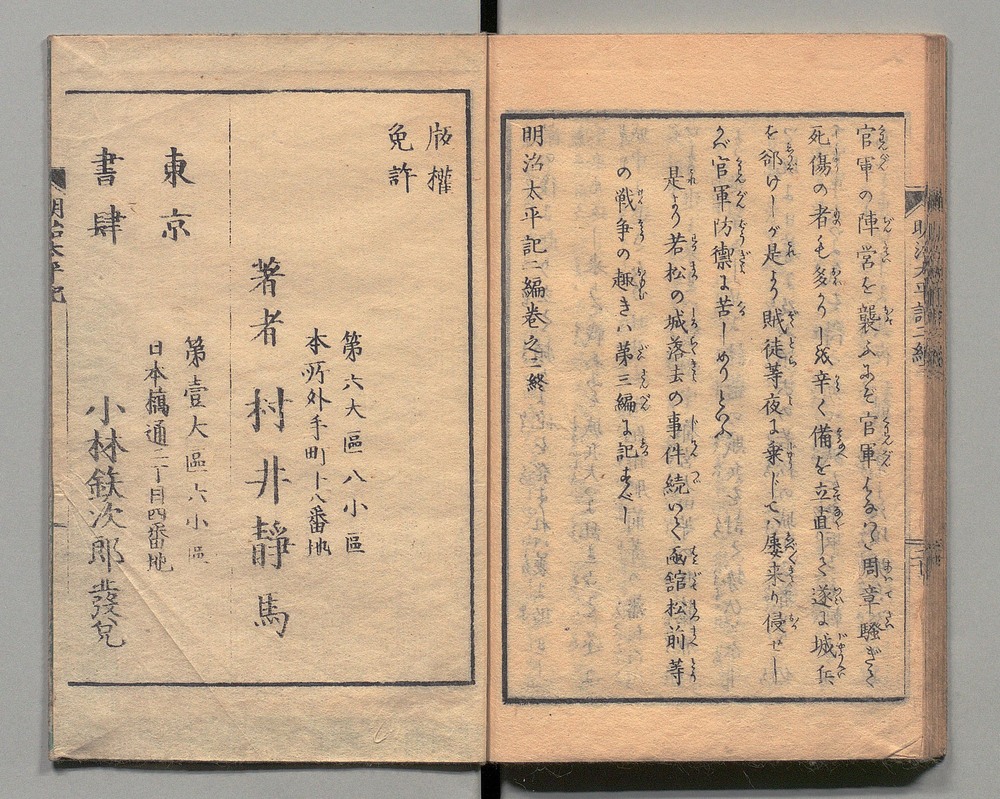 官軍の陣営を襲ふにぞ官軍よもと周章騒ぎて
死傷の者も多かりしが辛く備を立直して遂に城兵
を郤けしが是より賊徒等夜に乗じてハ屡来り侵せし
かバ官軍防禦に苦しめりといふ
是より若松の城落去の事件続いて凾舘松前等
の戦争の趣きハ第三編に記すべし
明治太平記二編巻之二終
明治太平記二編
版權
免許
第六大區八小區
本所外手町十八番地
著者 村井靜馬
東京
書肆
第壹大區六小區
日本橋通二丁目四番地
小林鉄次郎發兌
明治太平記